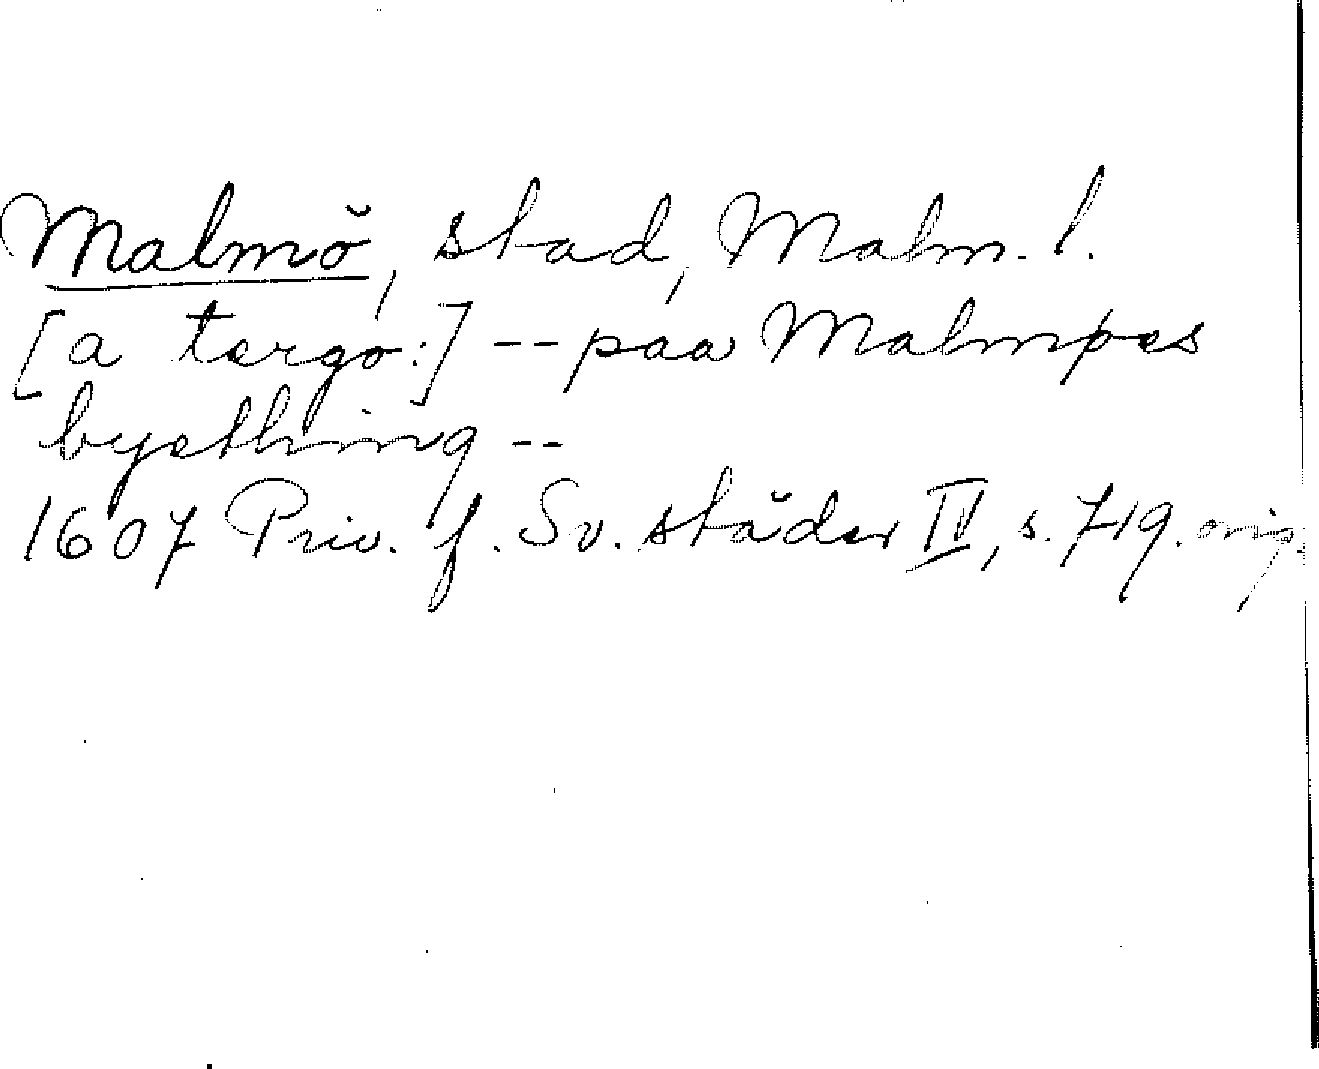 Malmö, stad, Malm. l.
[a tergo:] -- paa Malmøes
byething --
1607 Priv. f. Sv. städer IV, s. 719. orig.